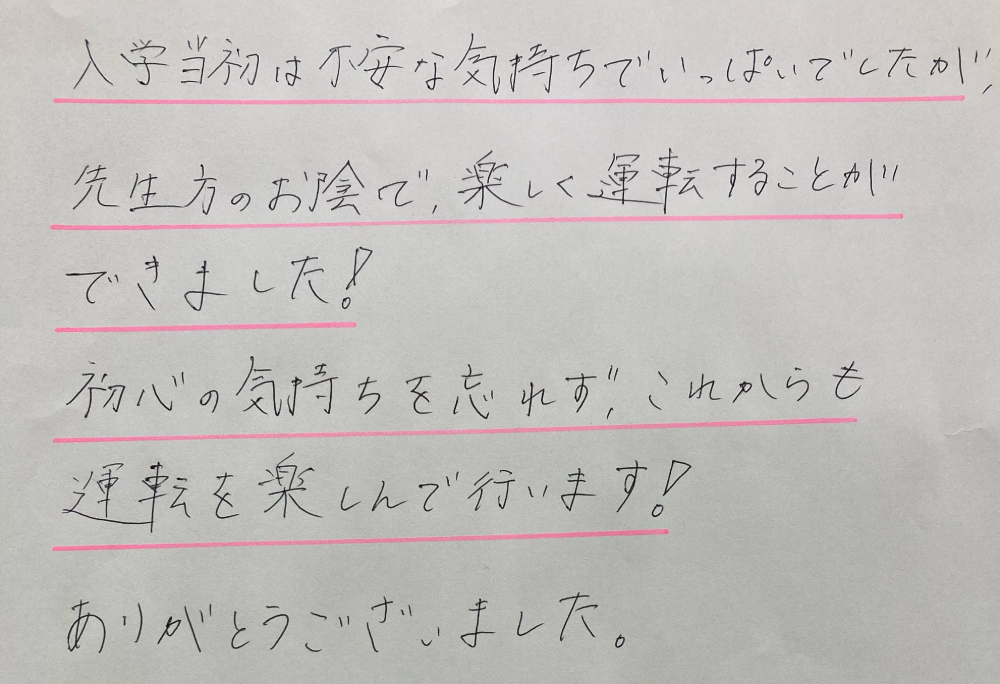 入学当初は不安な気持ちでいっぱいでしたが、
先生方のお陰で、楽しく運転することが
できました!
初心の気持ちを忘れず、これからも
運転を楽しんで行います!
ありがとうございました。